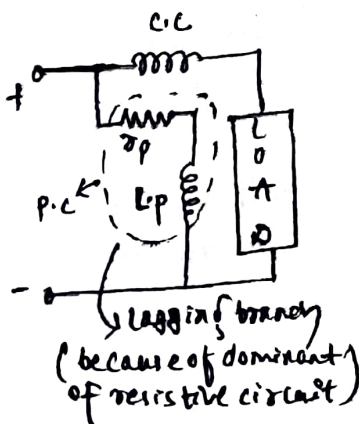 C.C
+
rp
P.C
Lp
LOAD
-
lagging branch
(because of dominant)
of resistive circuit)